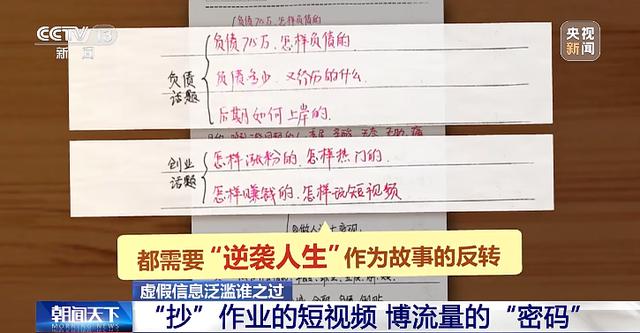 CCTV 13
新闻
央视
新闻
负债715万,怎样负债的
负债话题
负债715万,怎样负债的.
负债多少,又经历的什么.
后期如何上岸的.
创业话题
怎样涨粉的,怎样热门的.
怎样赚钱的,怎样 短视频
都需要“逆袭人生”作为故事的反转
虚假信息泛滥谁之过
朝闻天下
MORNING NEWS
“抄”作业的短视频 博流量的“密码”